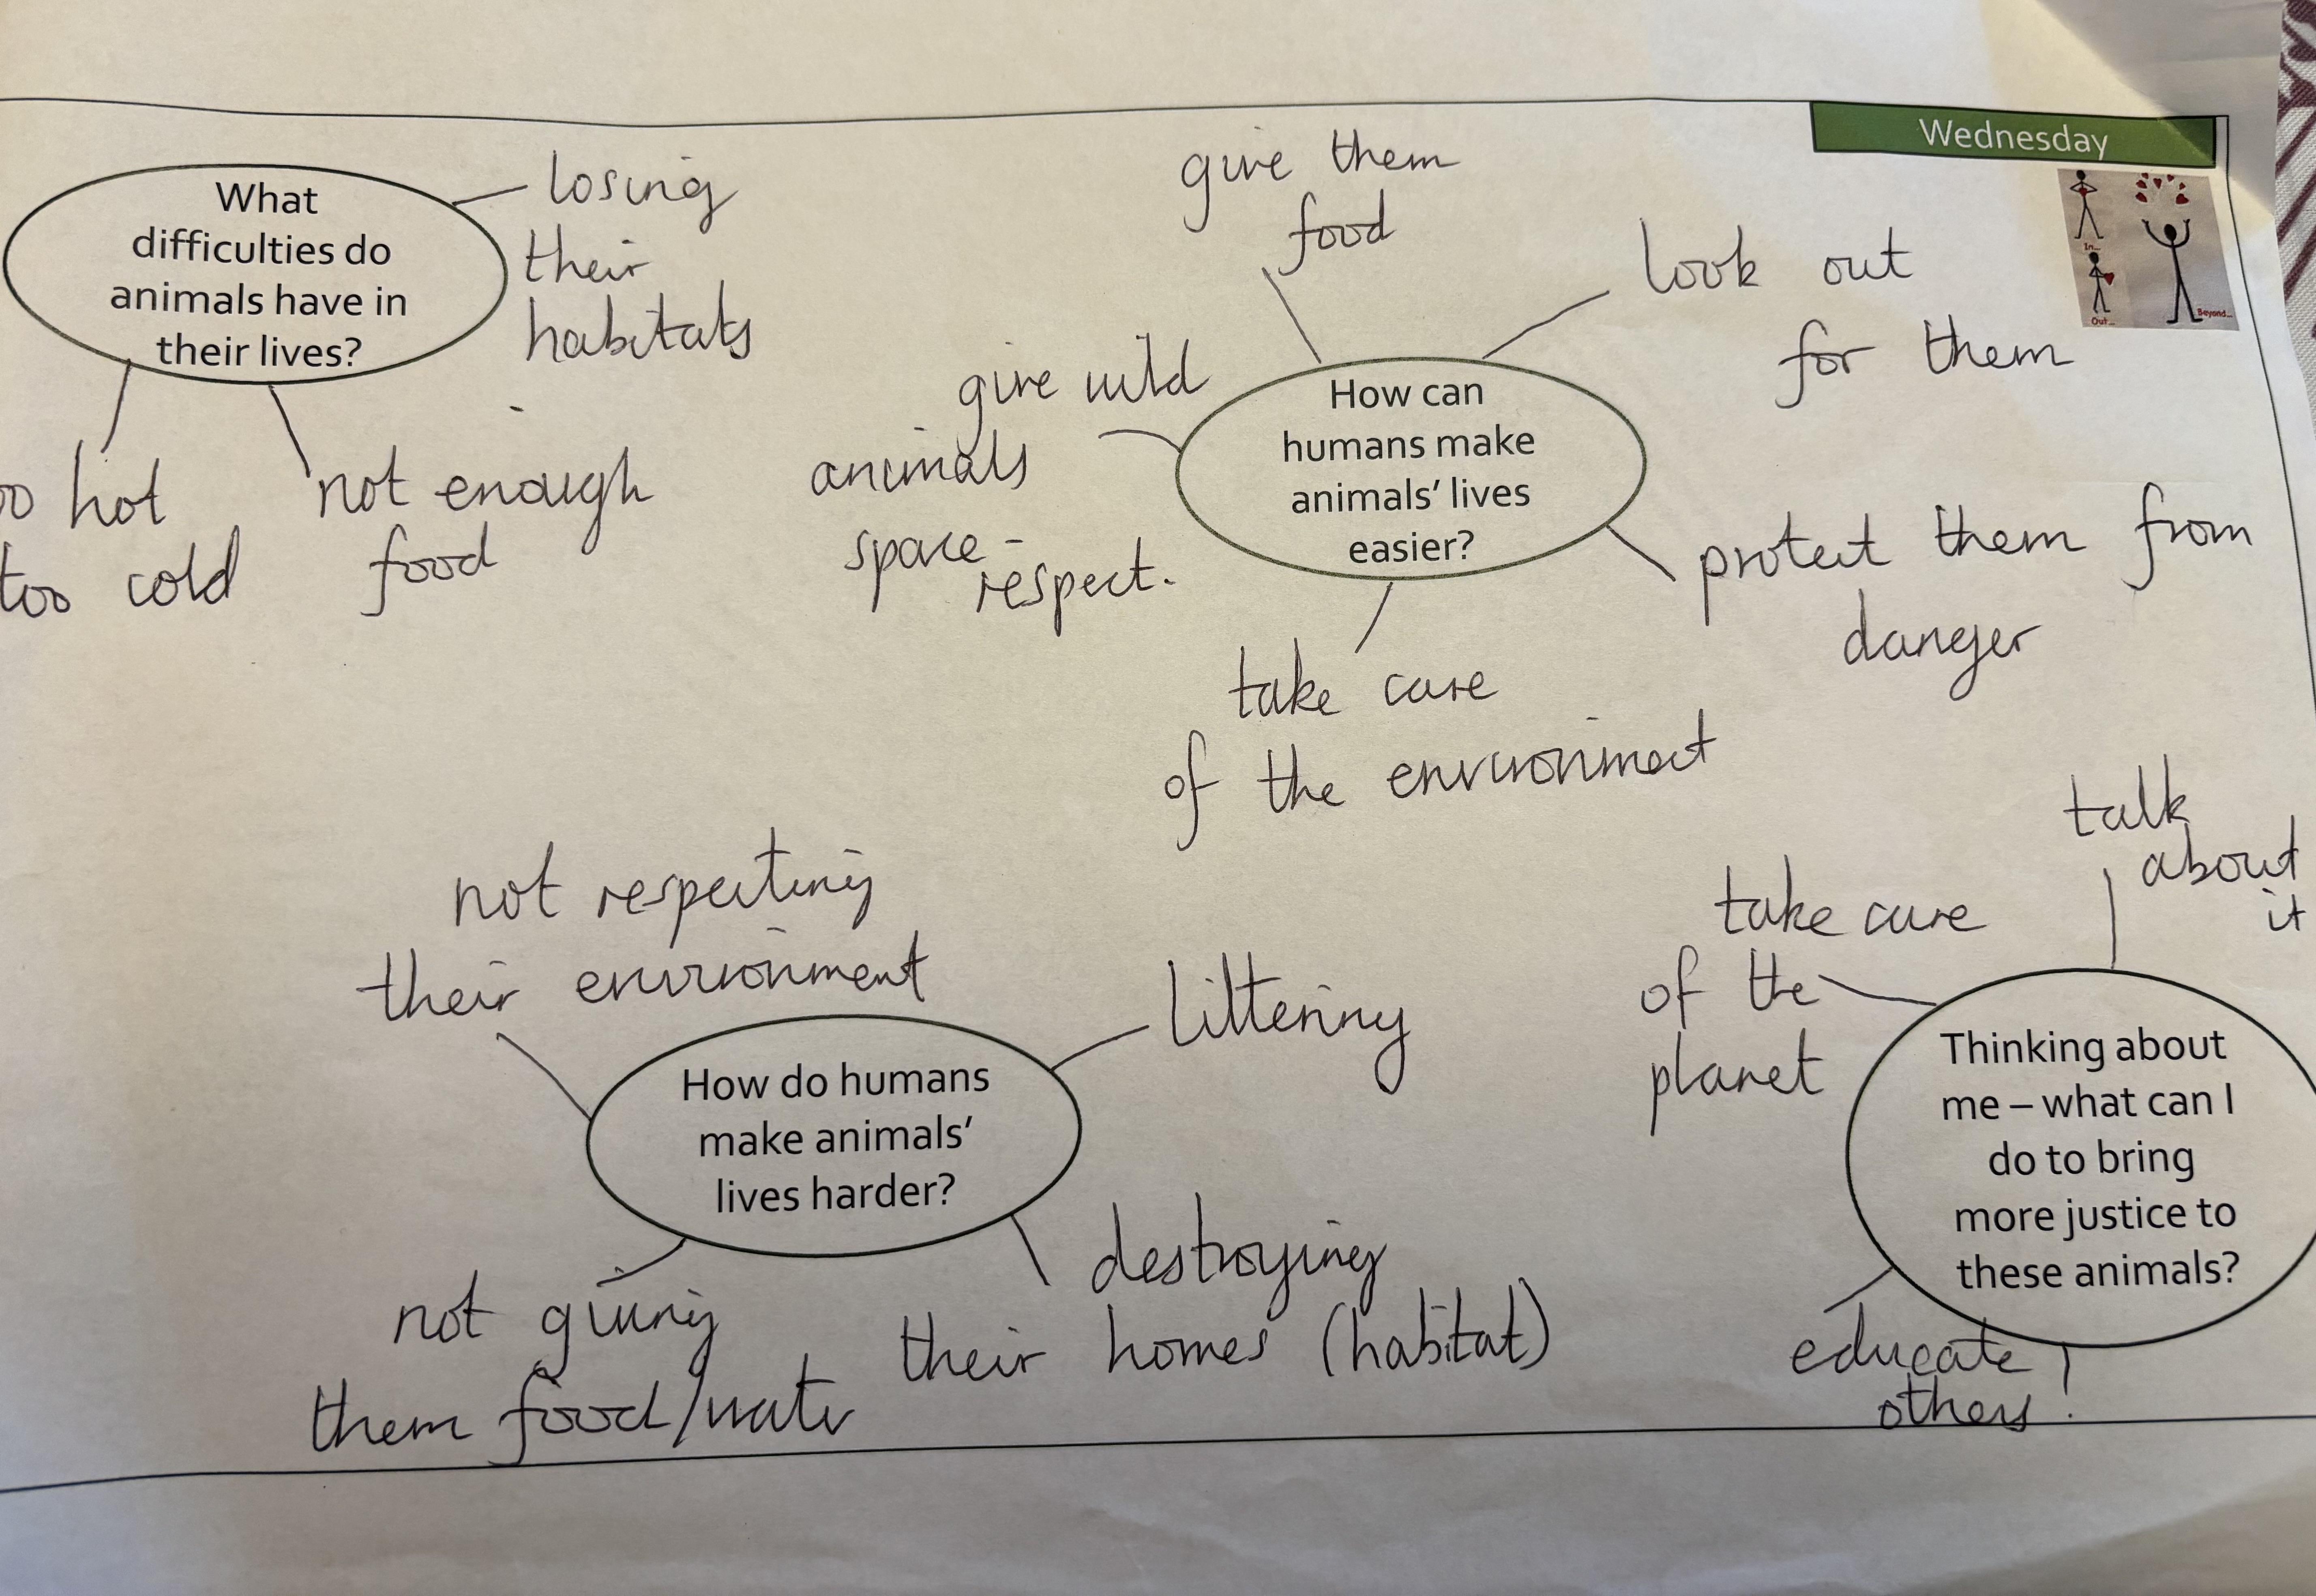 Wednesday
In...
Out...
Beyond...
What
difficulties do
animals have in
their lives?
losing
their
habitats
oo hot
too cold
not enough
food
How can
humans make
animals' lives
easier?
give them
food
look out
for them
give wild
animals
space -
respect.
protect them from
danger
take care
of the environment
How do humans
make animals'
lives harder?
not respecting
their environment
littering
not giving
them food/water
destroying
their homes (habitat)
Thinking about
me – what can I
do to bring
more justice to
these animals?
talk
about
it
take care
of the
planet
educate
others!